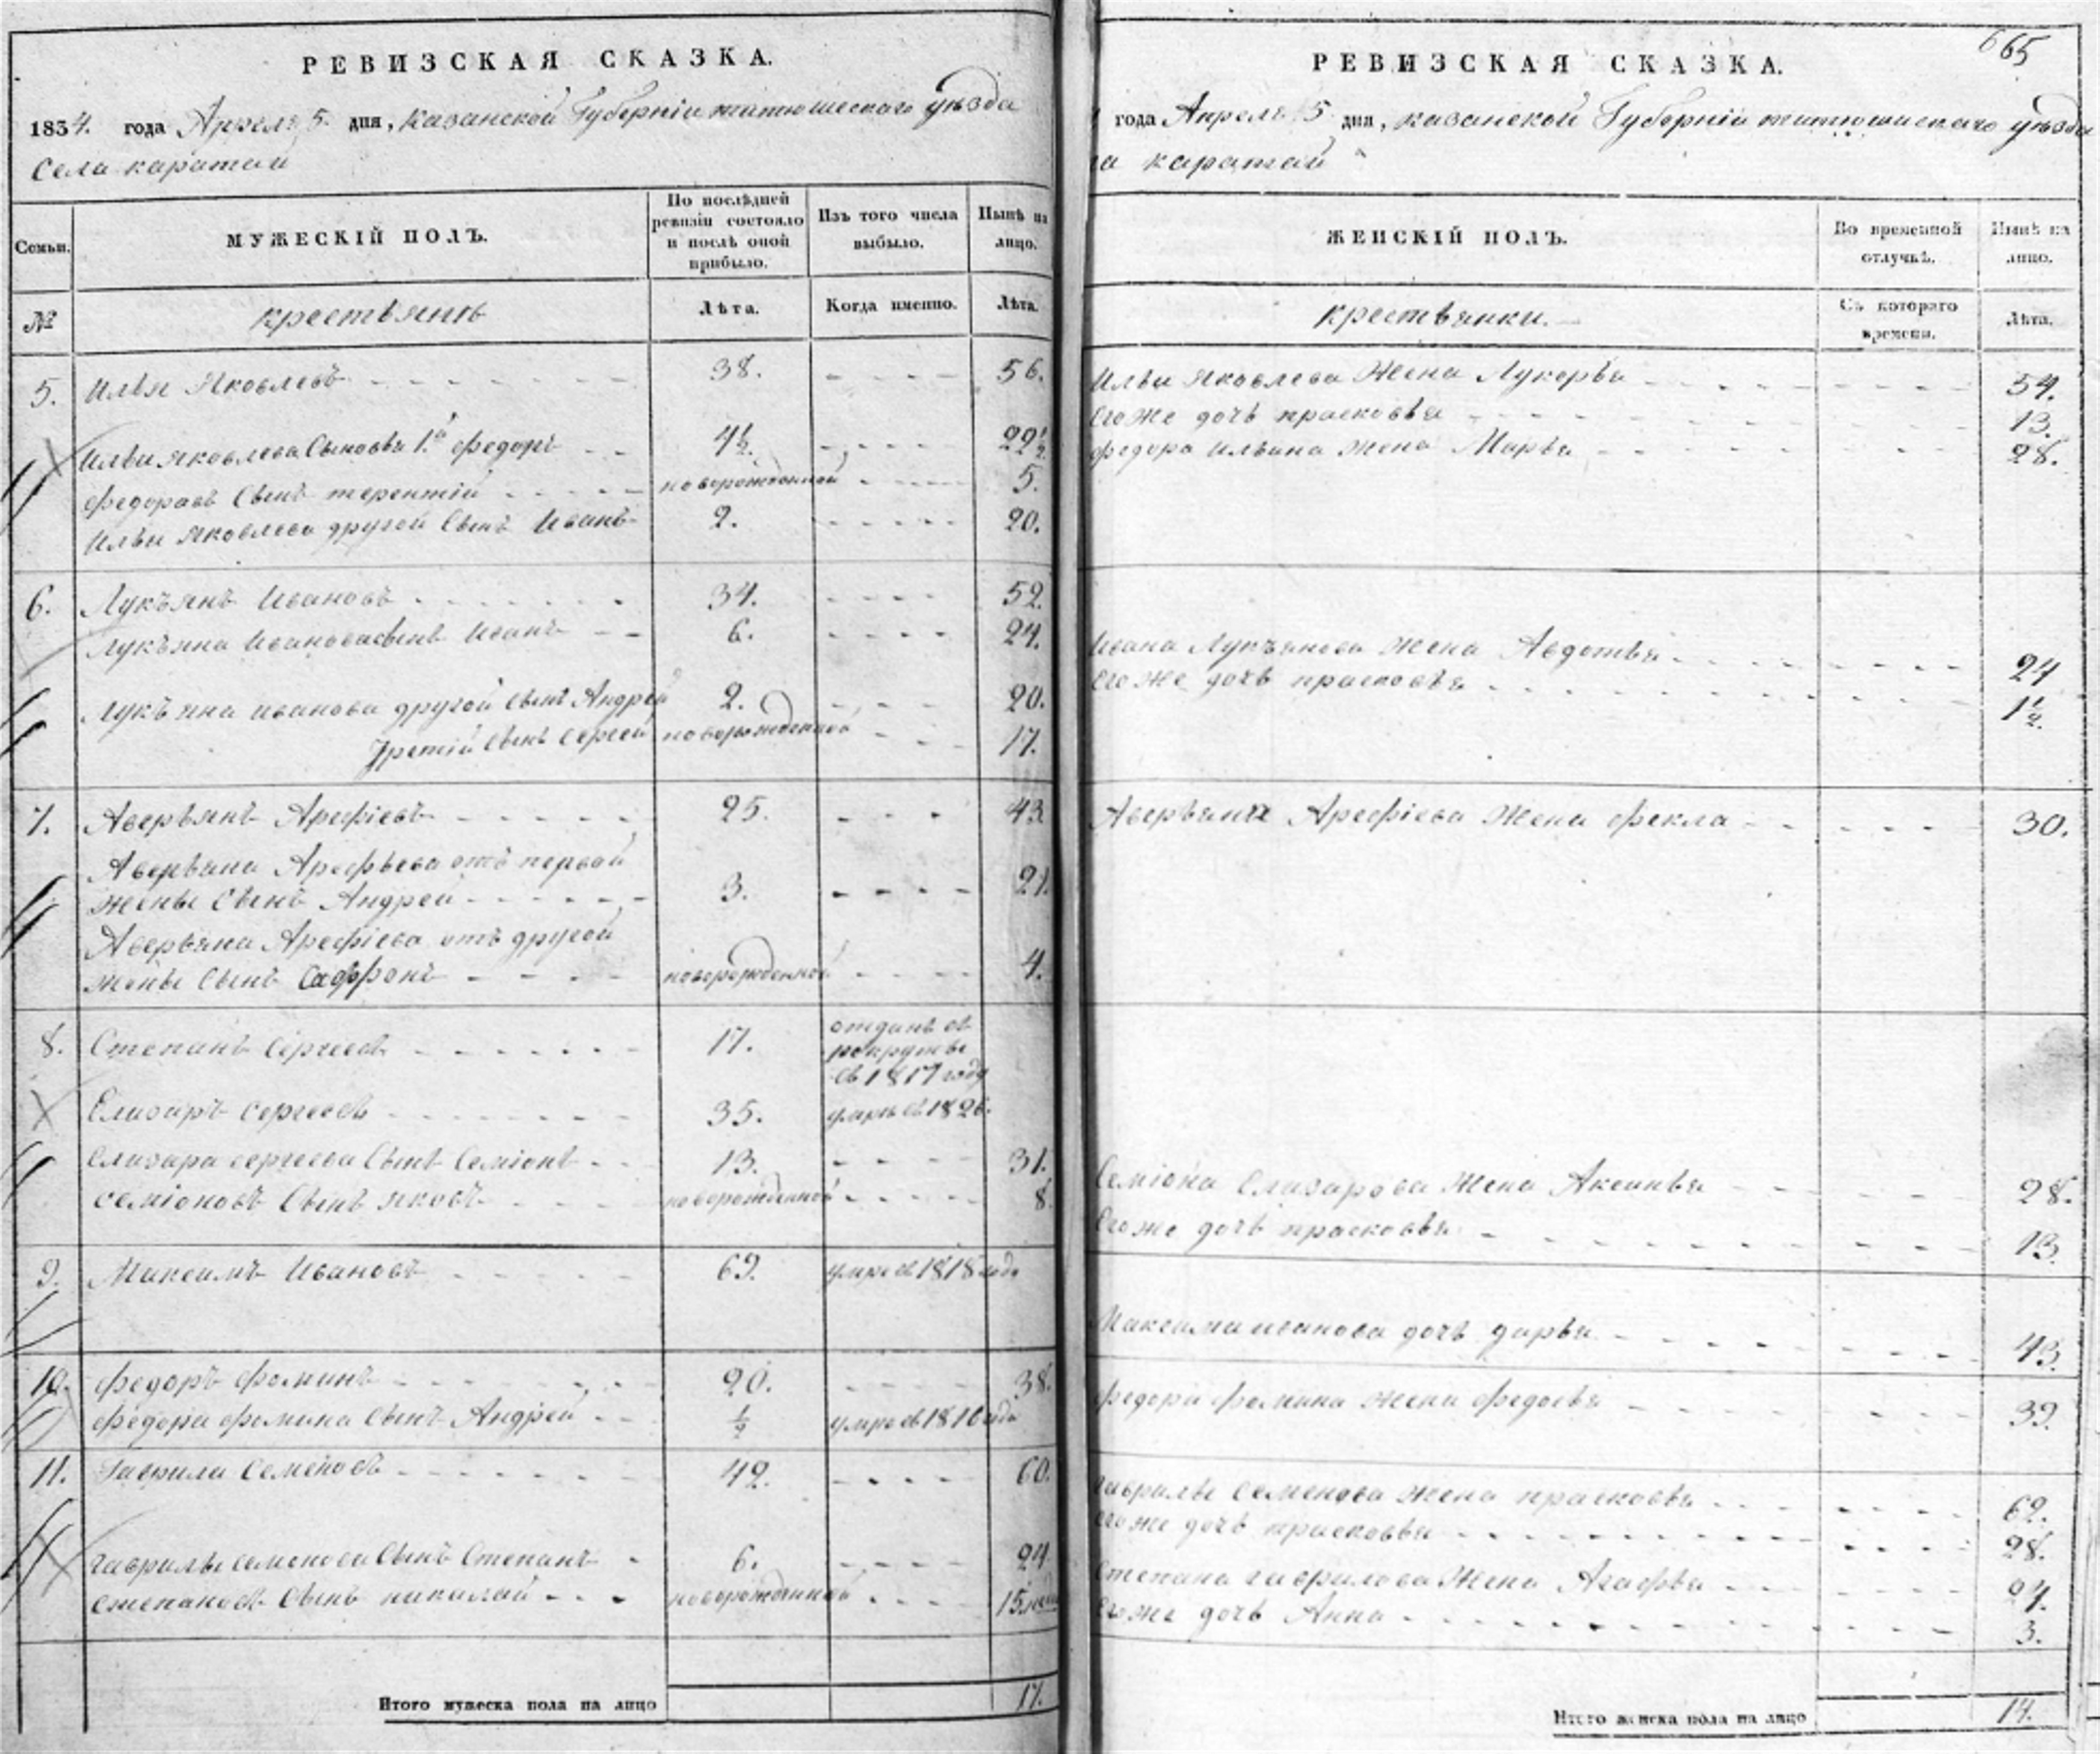 РЕВИЗСКАЯ СКАЗКА.
1834. года Апреля 5. дня, казанской Губерніи тетюшескаго уѣзда
Села каратай
Семьи.
МУЖЕСКІЙ ПОЛЪ.
По послѣдней
ревизіи состояло
и послѣ оной
прибыло.
Изъ того числа
выбыло.
Нынѣ на
лицо.
№
крестьянъ
Лѣта.
Когда именно.
Лѣта.
5. Илья Яковлевъ 38. 56.
Ильи яковлева Сыновья 1.й федоръ 4½. 22½
федоравъ Сынъ терентій новорожденной 5.
Ильи Яковлева другой Сынъ Иванъ 2. 20.
6. Лукъянъ Ивановъ 34. 52.
Лукъяна Иванова сынъ Иванъ 6. 24.
Лукъяна иванова другой Сынъ Андрей 2. 20.
Третій Сынъ Сергей новорожденной 17.
7. Аверьянъ Арефіевъ 25. 43
Аверьяна Арефьева отъ первой
жены Сынъ Андрей 3. 21.
Аверьяна Арефіева отъ другой
жены Сынъ Сафронъ новорожденной 4.
8. Степанъ Сергеевъ 17. отданъ въ
рекруты
въ 1817 году
Елизаръ Сергеевъ 35. умре въ 1826.
Елизара сергеева Сынъ Семіонъ 13. 31.
семіоновъ Сынъ яковъ новорожденной 8.
9. Максимъ Ивановъ 69. умре въ 1818 года
10. федоръ фоминъ 20. 38.
федора фомина Сынъ Андрей ½ умре въ 1816 года
11. Гаврила Семеновъ 42. 60.
гаврилы семенова Сынъ Степанъ 6. 24.
степановъ Сынъ николай новорожденной 15 неде
Итого мужеска пола на лицо 17.
665
РЕВИЗСКАЯ СКАЗКА.
года Апреля 5 дня, казанской Губерніи тетюшескаго уѣзда
ла каратай
ЖЕНСКІЙ ПОЛЪ.
Во временной
отлучкѣ.
Нынѣ на
лицо.
крестьянки.
Съ котораго
времени.
Лѣта.
Ильи яковлева Жена Лукерья 54.
Его же дочь прасковья 13.
федора ильина жена Марья 28.
Ивана Лукъянова жена Авдотья 24
Его же дочь прасковья 1½.
Аверьяна Арефіева Жена фекла 30.
Семіона Елизарова жена Аксинья 28.
Его же дочь прасковья 13.
Максима иванова дочь дарья 43.
федора фомина жена федосья 39.
гаврилы семенова жена прасковья 62.
его же дочь прасковья 28.
Степана гаврилова Жена Агафья 24.
Его же дочь Анна 3.
Итого женска пола на лицо 14.